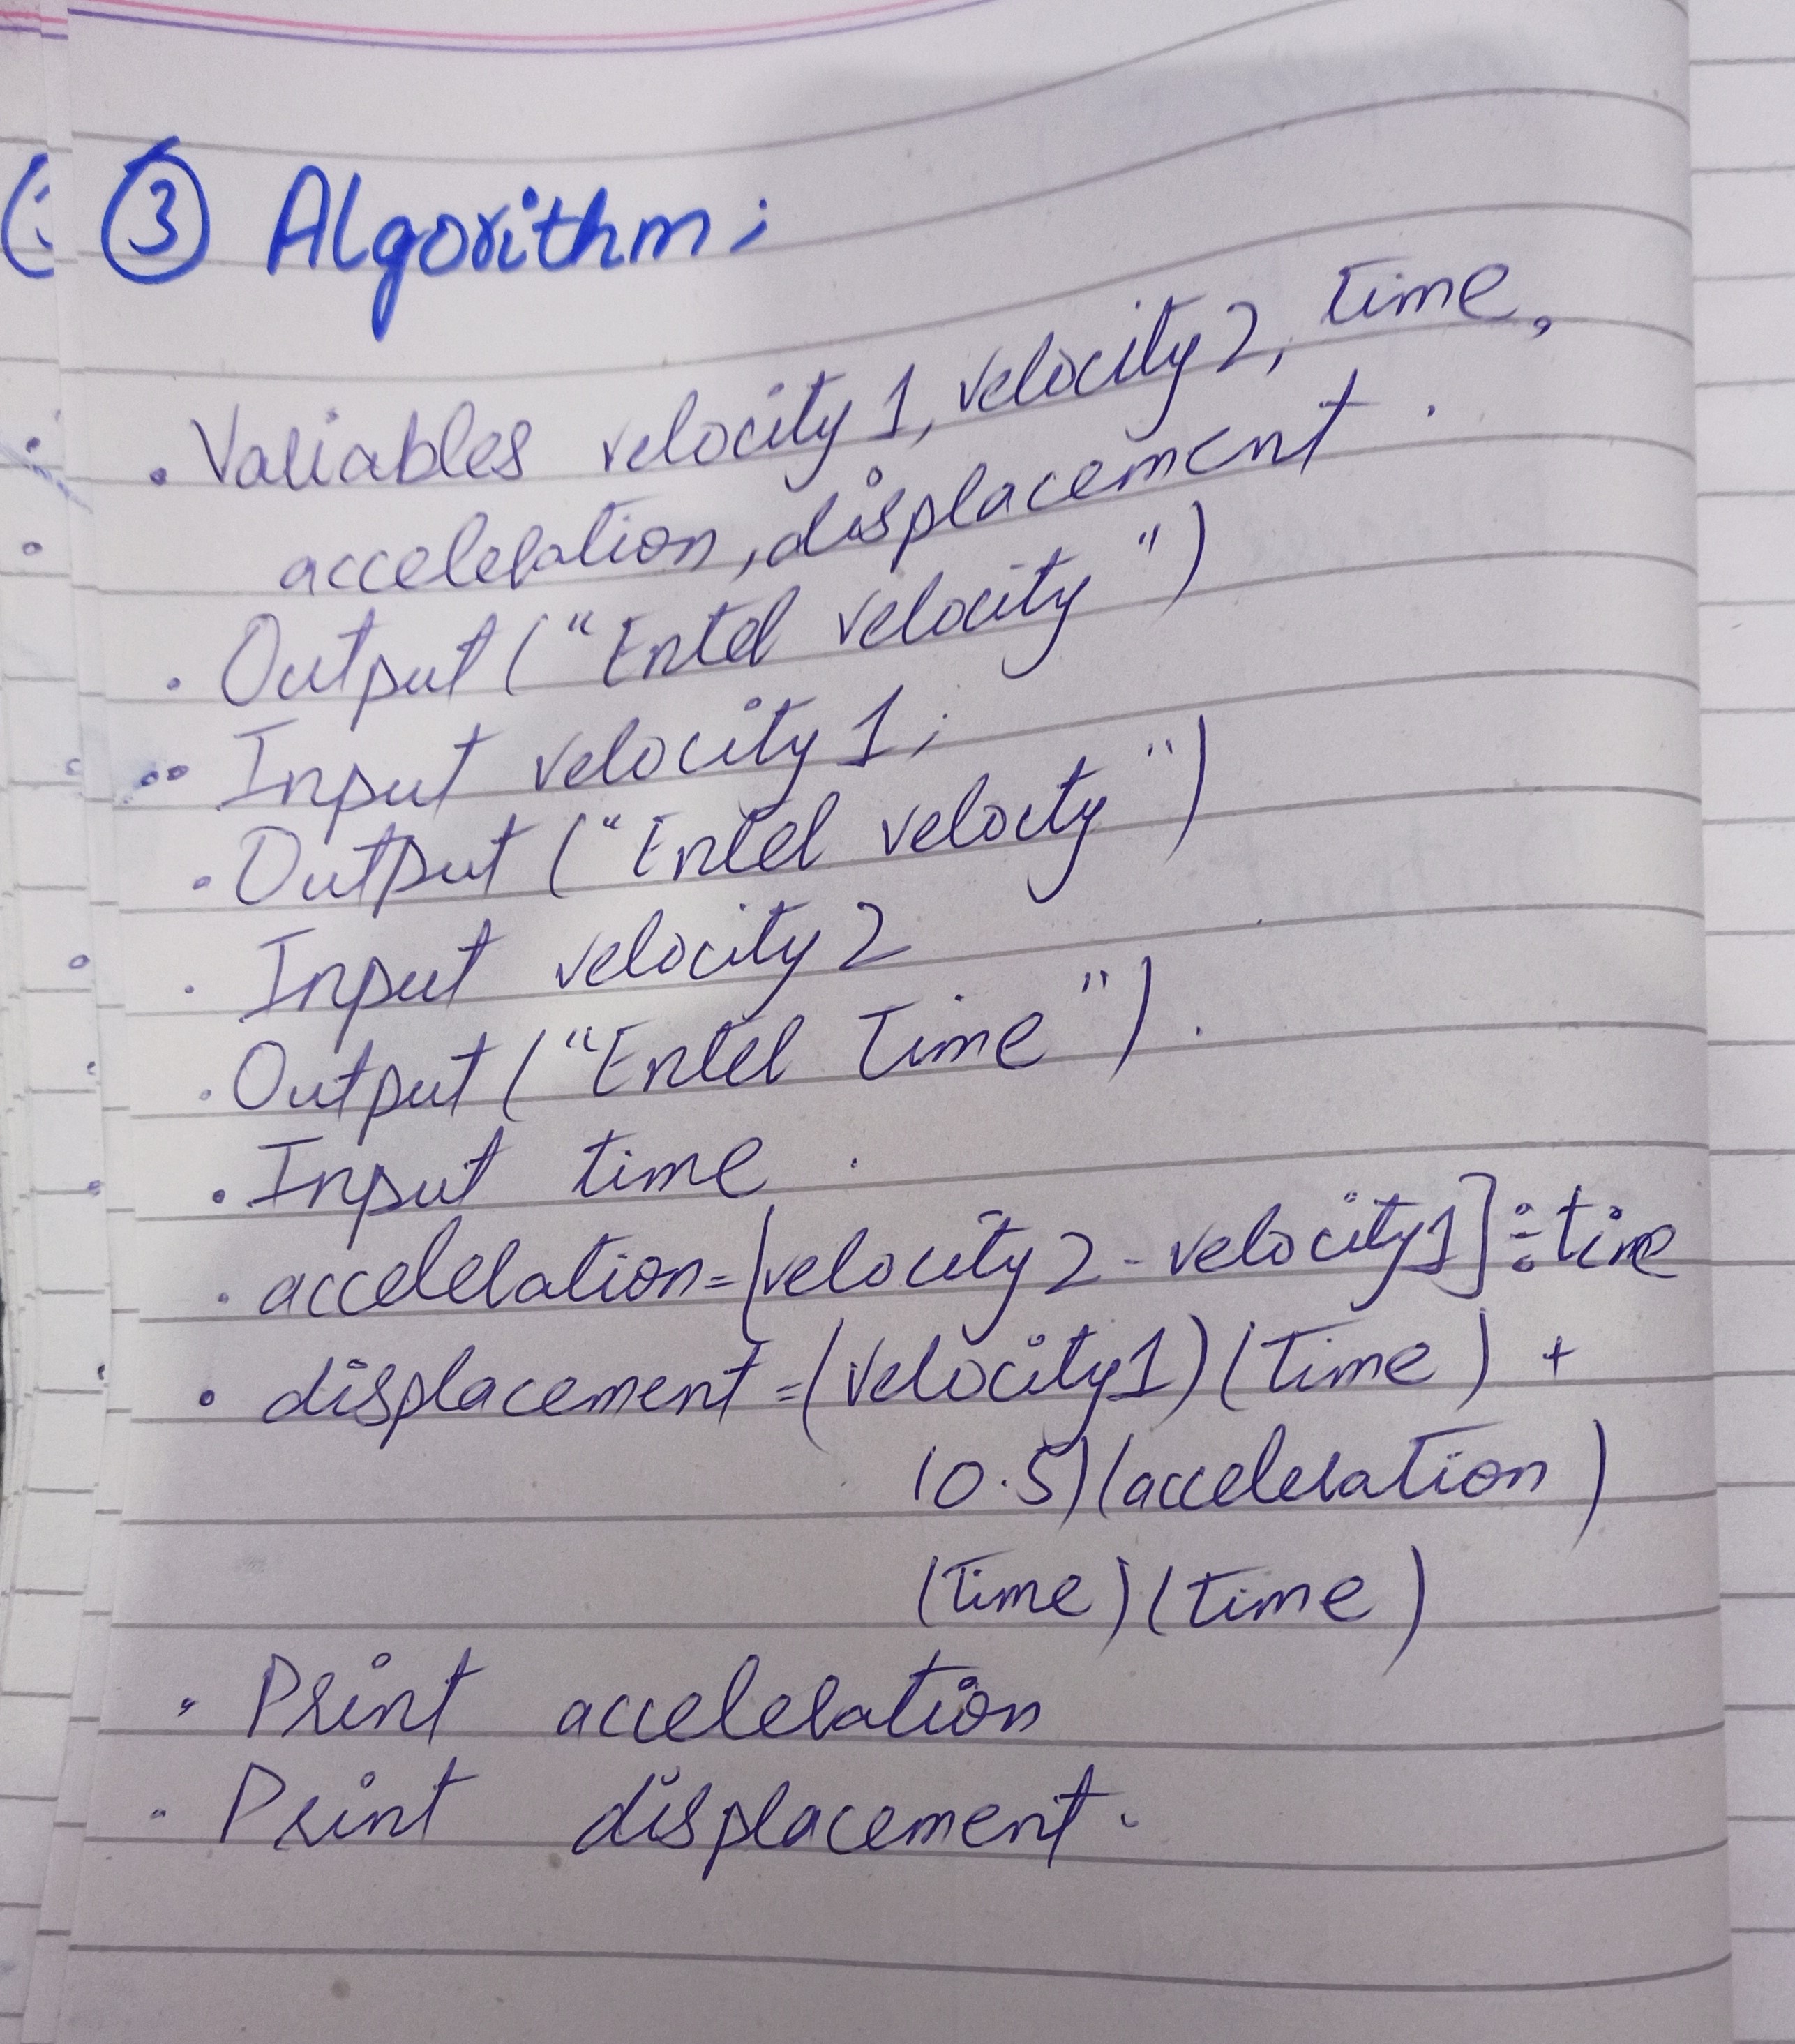 ③ Algorithm:
. Variables velocity 1, velocity 2, time,
acceleration, displacement.
. Output ("Enter velocity")
.. Input velocity 1;
. Output ("Enter velocity")
. Input velocity 2
. Output ("Enter Time").
. Input time.
. acceleration=[velocity 2 - velocity1]÷time
. displacement=(velocity1)(Time) +
(0.5)(acceleration)
(Time)(time)
. Print acceleration
. Print displacement.